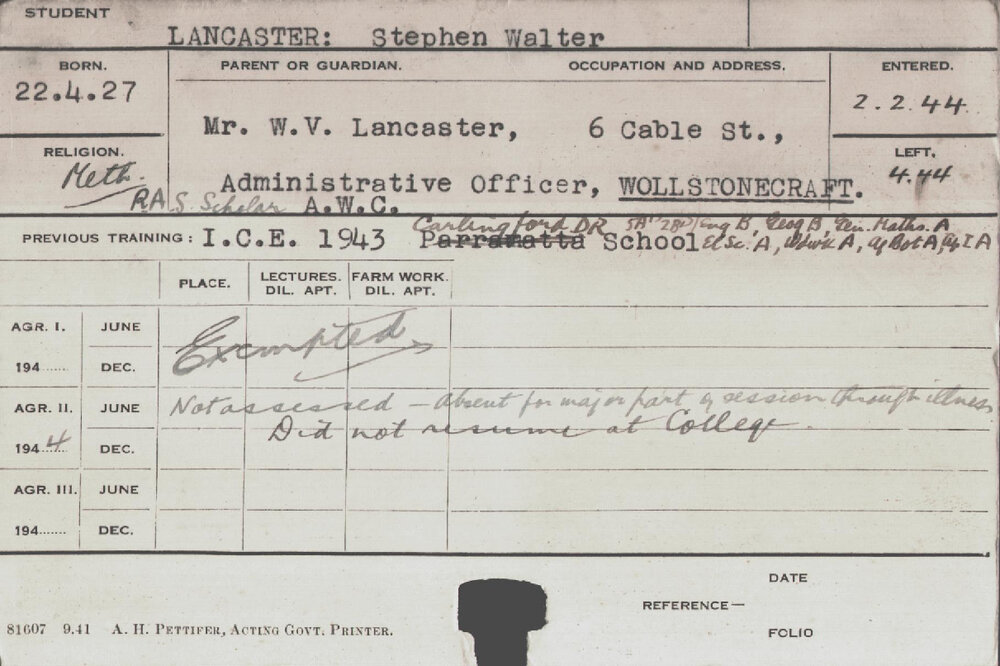 STUDENT
LANCASTER: Stephen Walter
BORN. PARENT OR GUARDIAN. OCCUPATION AND ADDRESS. ENTERED.
22.4.27 2.2.44
Mr. W.V. Lancaster, 6 Cable St.,
RELIGION. LEFT.
Meth. 4.44
Administrative Officer, WOLLSTONECRAFT.
R.A.S. Scholar A.W.C.
Carlingford DR Eng B, Geog B, Gen. Maths. A
PREVIOUS TRAINING: I.C.E. 1943 Parramatta School El Sc. A, Wdwk A, Ag Bot A, Ag I A
PLACE. LECTURES. FARM WORK.
DIL. APT. DIL. APT.
AGR. I. JUNE Exempted
194...... DEC.
AGR. II. JUNE Not assessed — Absent for major part of session through illness
Did not resume at College.
1944 DEC.
AGR. III. JUNE
194...... DEC.
DATE
REFERENCE—
FOLIO
81607 9.41 A. H. PETTIFER, ACTING GOVT. PRINTER.